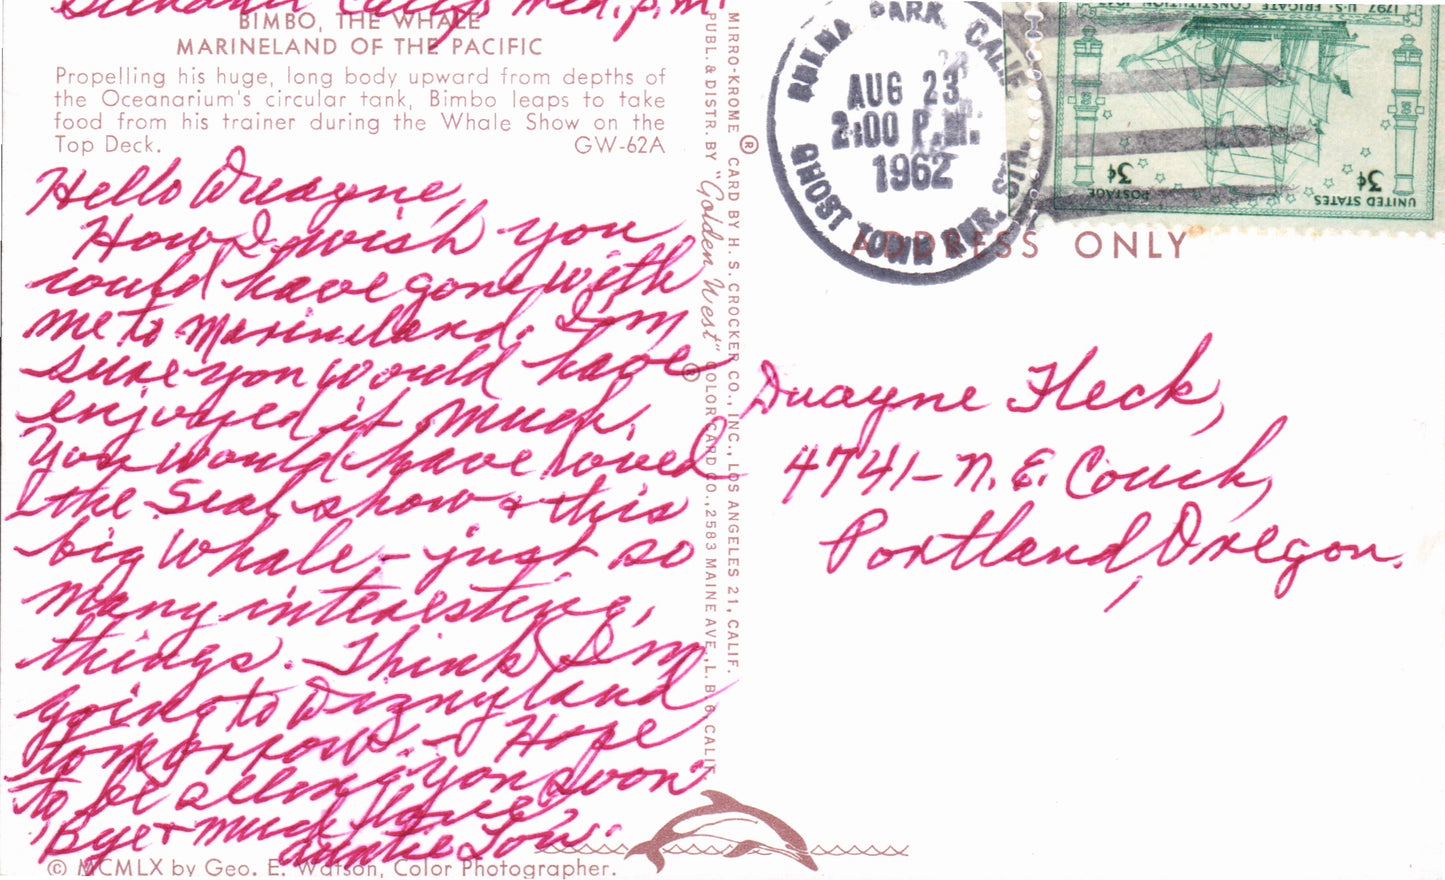 Calif. Wed. p.m.
BIMBO, THE WHALE
MARINELAND OF THE PACIFIC
Propelling his huge, long body upward from depths of
the Oceanarium's circular tank, Bimbo leaps to take
food from his trainer during the Whale Show on the
Top Deck. GW-62A
Hello Duayne,
How I wish you
could have gone with
me to Marineland. I'm
sure you would have
enjoyed it much.
You would have loved
the Seal show & this
big whale - just so
many interesting,
things. Think I'm
going to Disnyland
tomorrow - Hope
to be seeing you soon
Bye & much love,
Auntie Lou.
© MCMLX by Geo. E. Watson, Color Photographer.
MIRRO-KROME ® CARD BY H. S. CROCKER CO., INC., LOS ANGELES 21, CALIF.
PUBL. & DISTR. BY "Golden West" ® COLOR CARD CO., 2583 MAINE AVE., L. B. 6, CALIF.
BUENA PARK CALIF.
AUG 23
2:00 P.M.
1962
GHOST TOWN RUR. STA.
1797 U.S. FRIGATE CONSTITUTION
3¢ POSTAGE 3¢
UNITED STATES
ADDRESS ONLY
Duayne Fleck,
4741 - N. E. Couch,
Portland, Oregon.